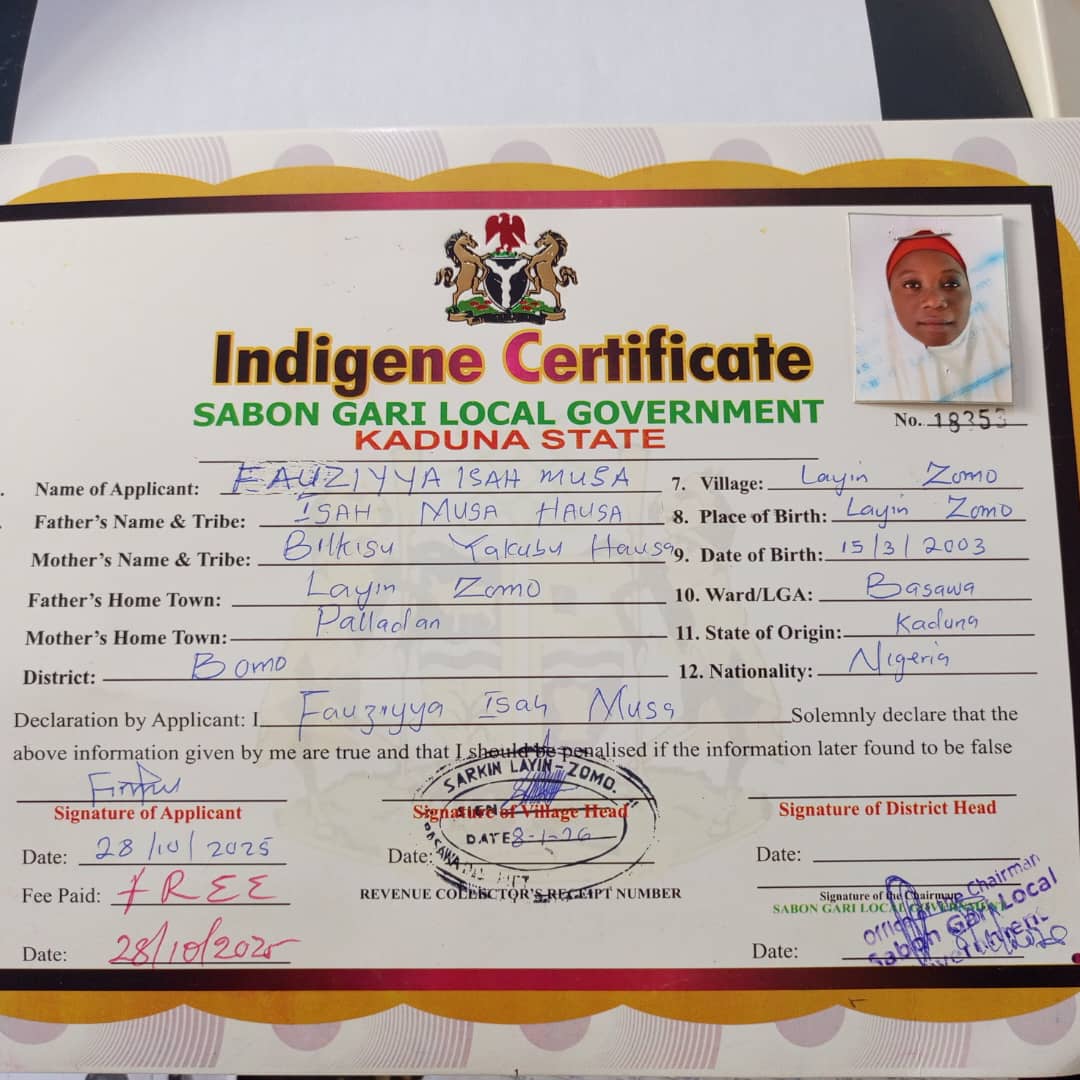 Indigene Certificate
SABON GARI LOCAL GOVERNMENT
KADUNA STATE
No. 18353
Name of Applicant: FAUZIYYA ISAH MUSA
Father's Name & Tribe: ISAH MUSA HAUSA
Mother's Name & Tribe: Bilkisu Yakubu Hausa
Father's Home Town: Layin Zomo
Mother's Home Town: Palladan
District: Bomo
7. Village: Layin Zomo
8. Place of Birth: Layin Zomo
9. Date of Birth: 15/3/2003
10. Ward/LGA: Basawa
11. State of Origin: Kaduna
12. Nationality: Nigeria
Declaration by Applicant: I Fauziyya Isah Musa Solemnly declare that the
above information given by me are true and that I should be penalised if the information later found to be false
Signature of Applicant
Date: 28/10/2025
Fee Paid: FREE
Date: 28/10/2025
SARKIN LAYIN-ZOMO.
SIGN
Signature of Village Head
DATE 8-1-26
BASAWA
Date:
REVENUE COLLECTOR'S RECEIPT NUMBER
Signature of District Head
Date:
Signature of the Chairman
SABON GARI LOCAL GOVERNMENT
Chairman
Sabon Gari Local
Date: